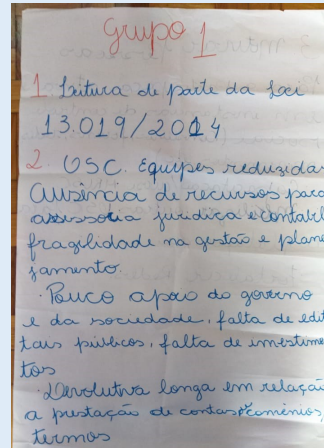 Grupo 1
1 Leitura de parte da Lei
13.019/2014
2. OSC. Equipes reduzidas
Ausência de recursos para
assessoria jurídica e contábil
fragilidade na gestão e plane
jamento.
· Pouco apoio do governo
e da sociedade, falta de edi
tais públicos, falta de investime
tos
· Devolutiva longa em relação
a prestação de contas, convênios,
termos